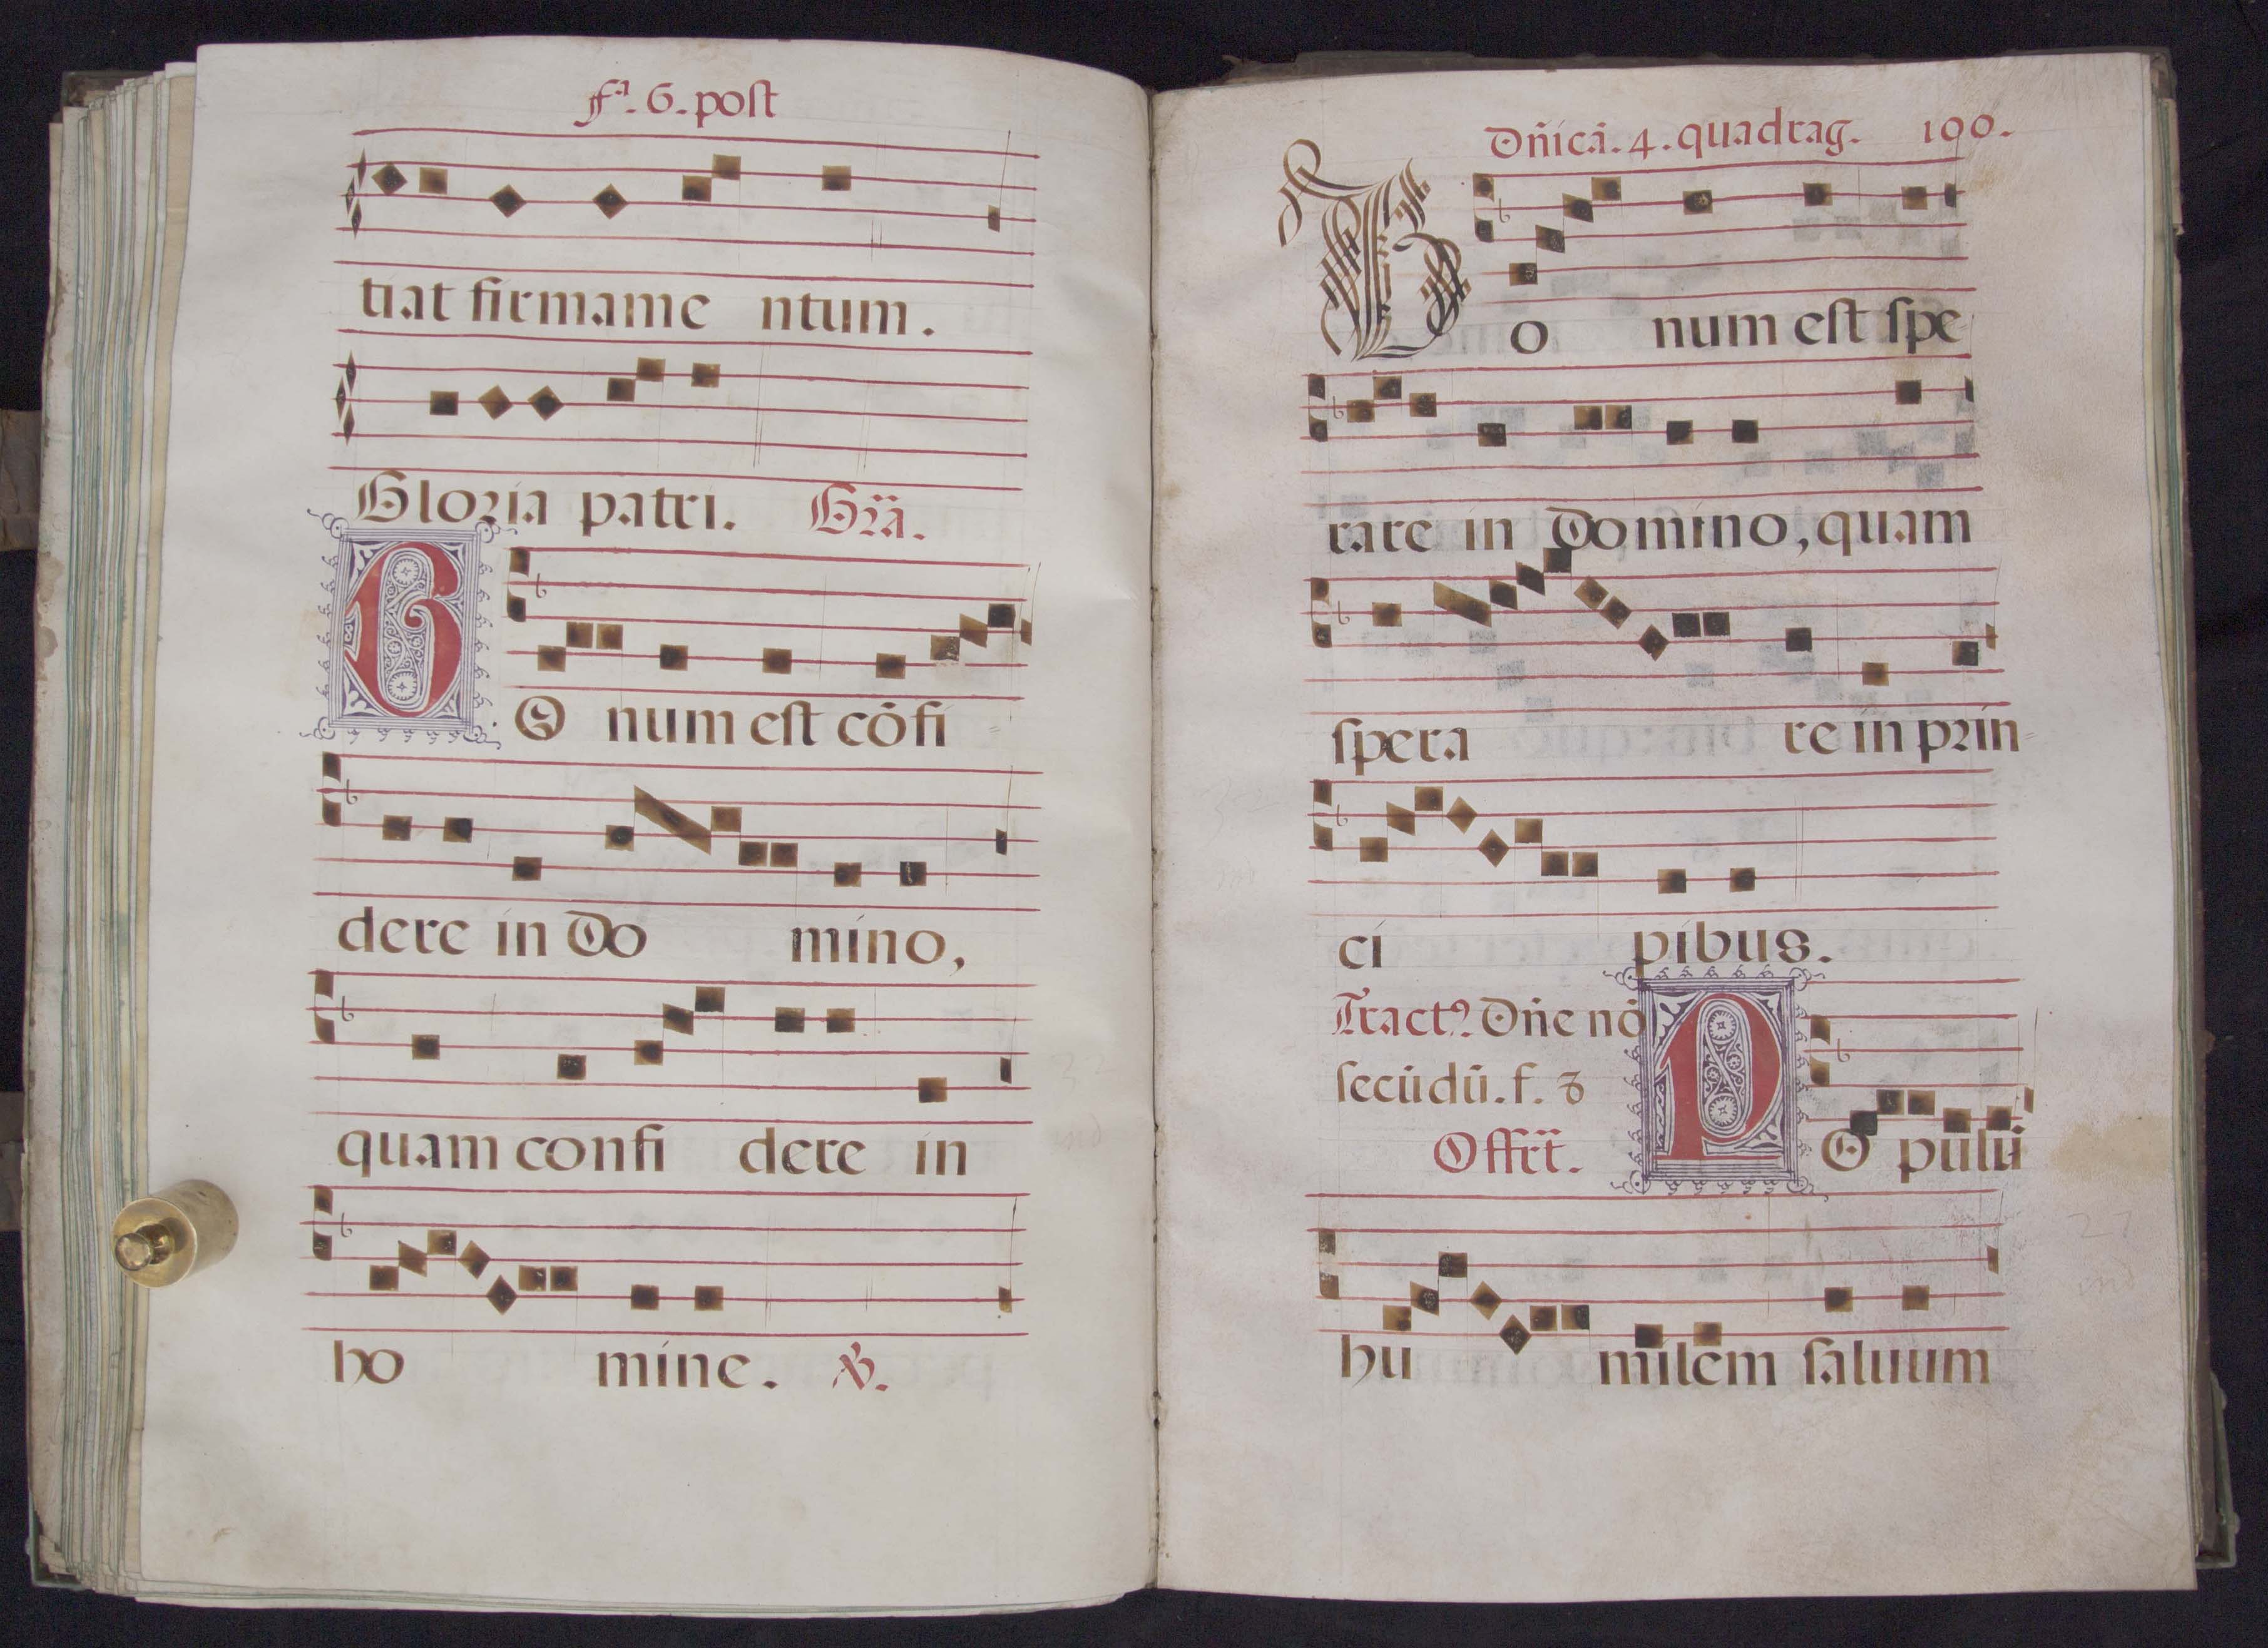 fª. 6. post
tiat firmame ntum.
Gloria patri. Gr̃a.
BO num est cõfi
dere in Do mino,
quam confi dere in
ho mine. ℣.
Dñicã. 4. quadrag. 100.
Bo num est spe
rare in Domino, quam
spera re in prin-
ci pibus.
Tractꝰ. Dñe nõ
secũdũ. f. 8
Offrt̃. PO pulũ
hu milem saluum